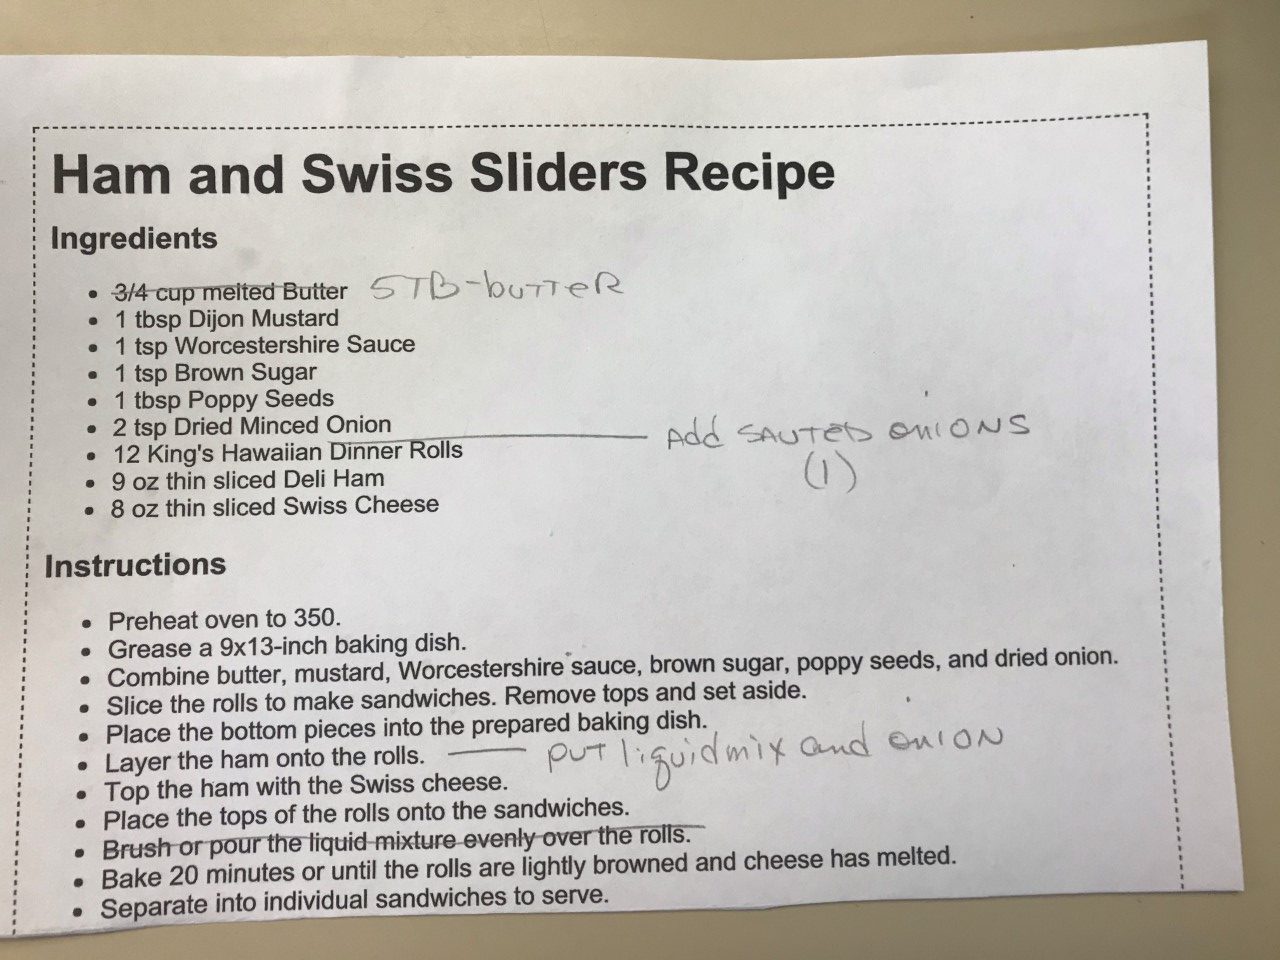 Ham and Swiss Sliders Recipe
Ingredients
3/4 cup melted Butter 5TB-butter
1 tbsp Dijon Mustard
1 tsp Worcestershire Sauce
1 tsp Brown Sugar
1 tbsp Poppy Seeds
2 tsp Dried Minced Onion Add SAUTEED ONIONS
(1)
12 King's Hawaiian Dinner Rolls
9 oz thin sliced Deli Ham
8 oz thin sliced Swiss Cheese
Instructions
Preheat oven to 350.
Grease a 9x13-inch baking dish.
Combine butter, mustard, Worcestershire sauce, brown sugar, poppy seeds, and dried onion.
Slice the rolls to make sandwiches. Remove tops and set aside.
Place the bottom pieces into the prepared baking dish.
Layer the ham onto the rolls. — put liquid mix and onion
Top the ham with the Swiss cheese.
Place the tops of the rolls onto the sandwiches.
Brush or pour the liquid mixture evenly over the rolls.
Bake 20 minutes or until the rolls are lightly browned and cheese has melted.
Separate into individual sandwiches to serve.